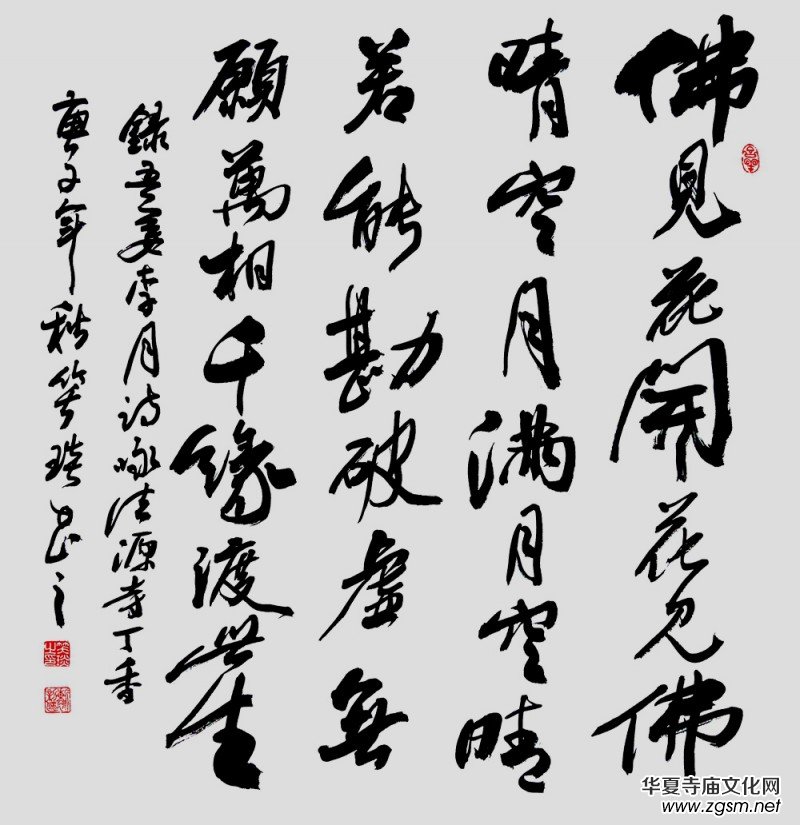 佛見花開花見佛
晴空月滿月空晴
若能勘破虛無
願萬相千緣渡此生
錄吾妻李月詩咏法源寺丁香
庚子年秋笑琰書之
华夏寺庙文化网
www.zgsm.net